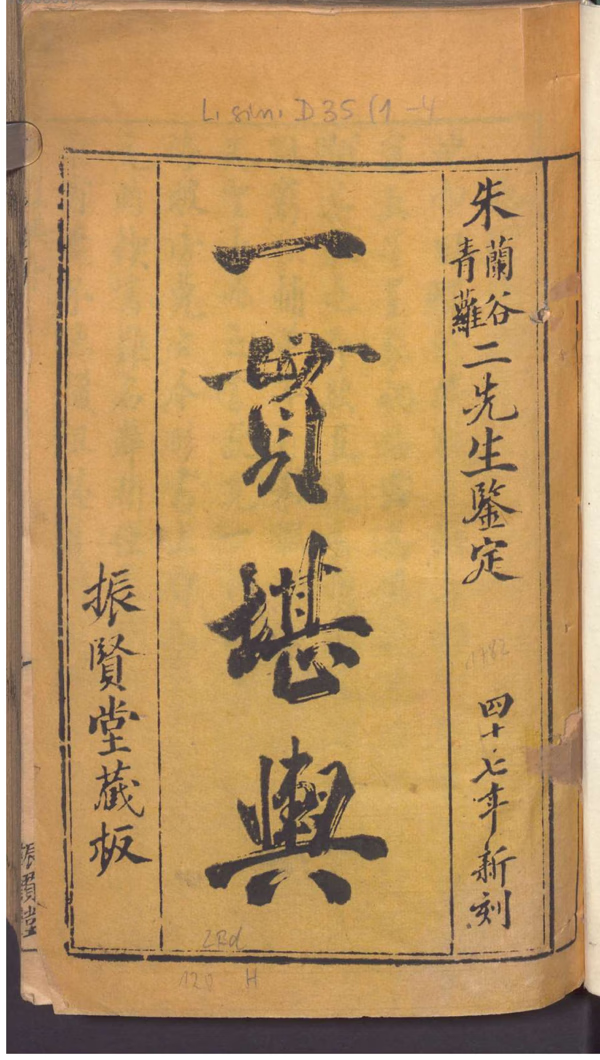 Li sini D 35 (1-4
朱蘭谷青蘿二先生鑒定
四十七年新刻
一貫堪輿
振賢堂藏板
1782
120 H